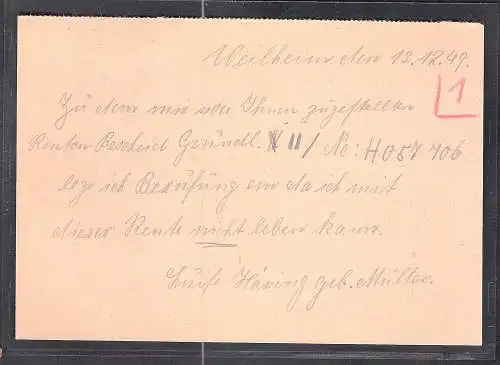 Weilheim den 13.12.49.
1
Zu dem mir von Ihnen zugestellten
Renten Bescheid Grundl. II / No: H057 706
lege ich Berufung ein da ich mit
dieser Rente nicht leben kann.
geb. Müller.